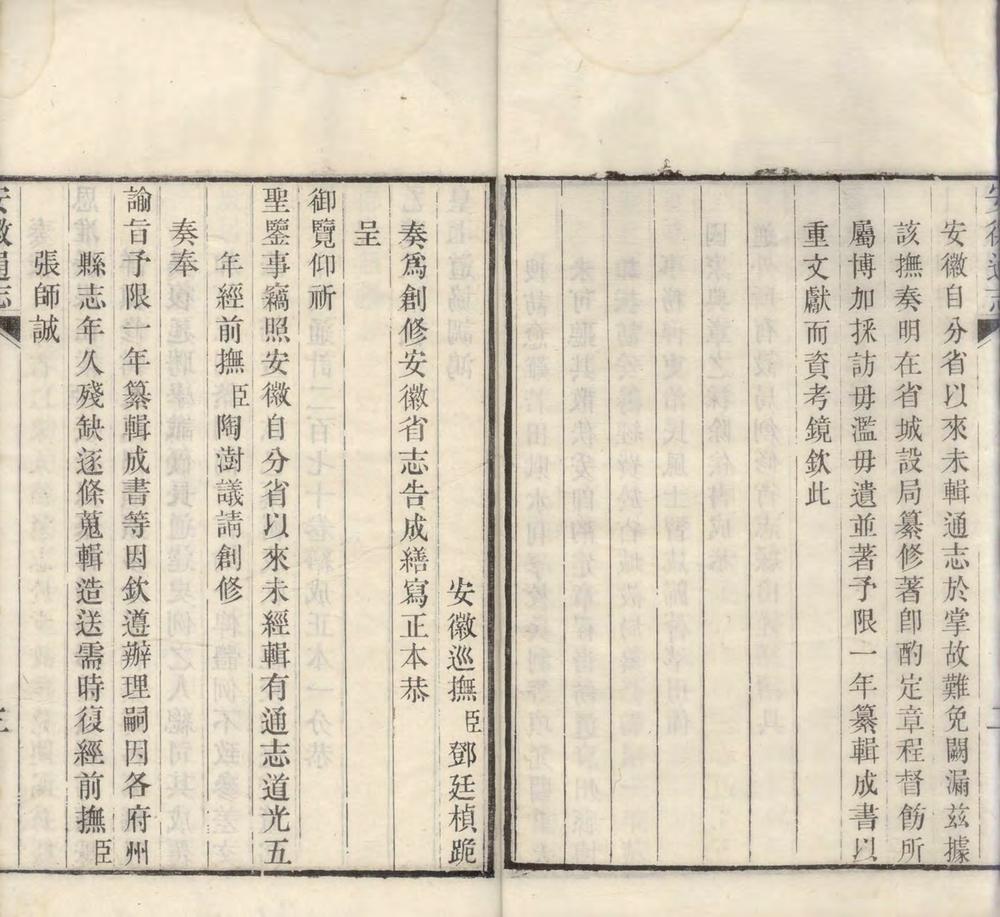 安徽自分省以來未輯通志於掌故難免闕漏兹據
該撫奏明在省城設局纂修著卽酌定章程督飭所
屬博加採訪毋濫毋遺並著予限一年纂輯成書以
重文獻而資考鏡欽此
安徽通志
二
安徽巡撫臣鄧廷楨跪
奏爲創修安徽省志告成繕寫正本恭
呈
御覽仰祈
聖鑒事竊照安徽自分省以來未經輯有通志道光五
年經前撫臣陶澍議請創修
奏奉
諭旨予限一年纂輯成書等因欽遵辦理嗣因各府州
縣志年久殘缺逐條蒐輯造送需時復經前撫臣
張師誠
安徽通志
三